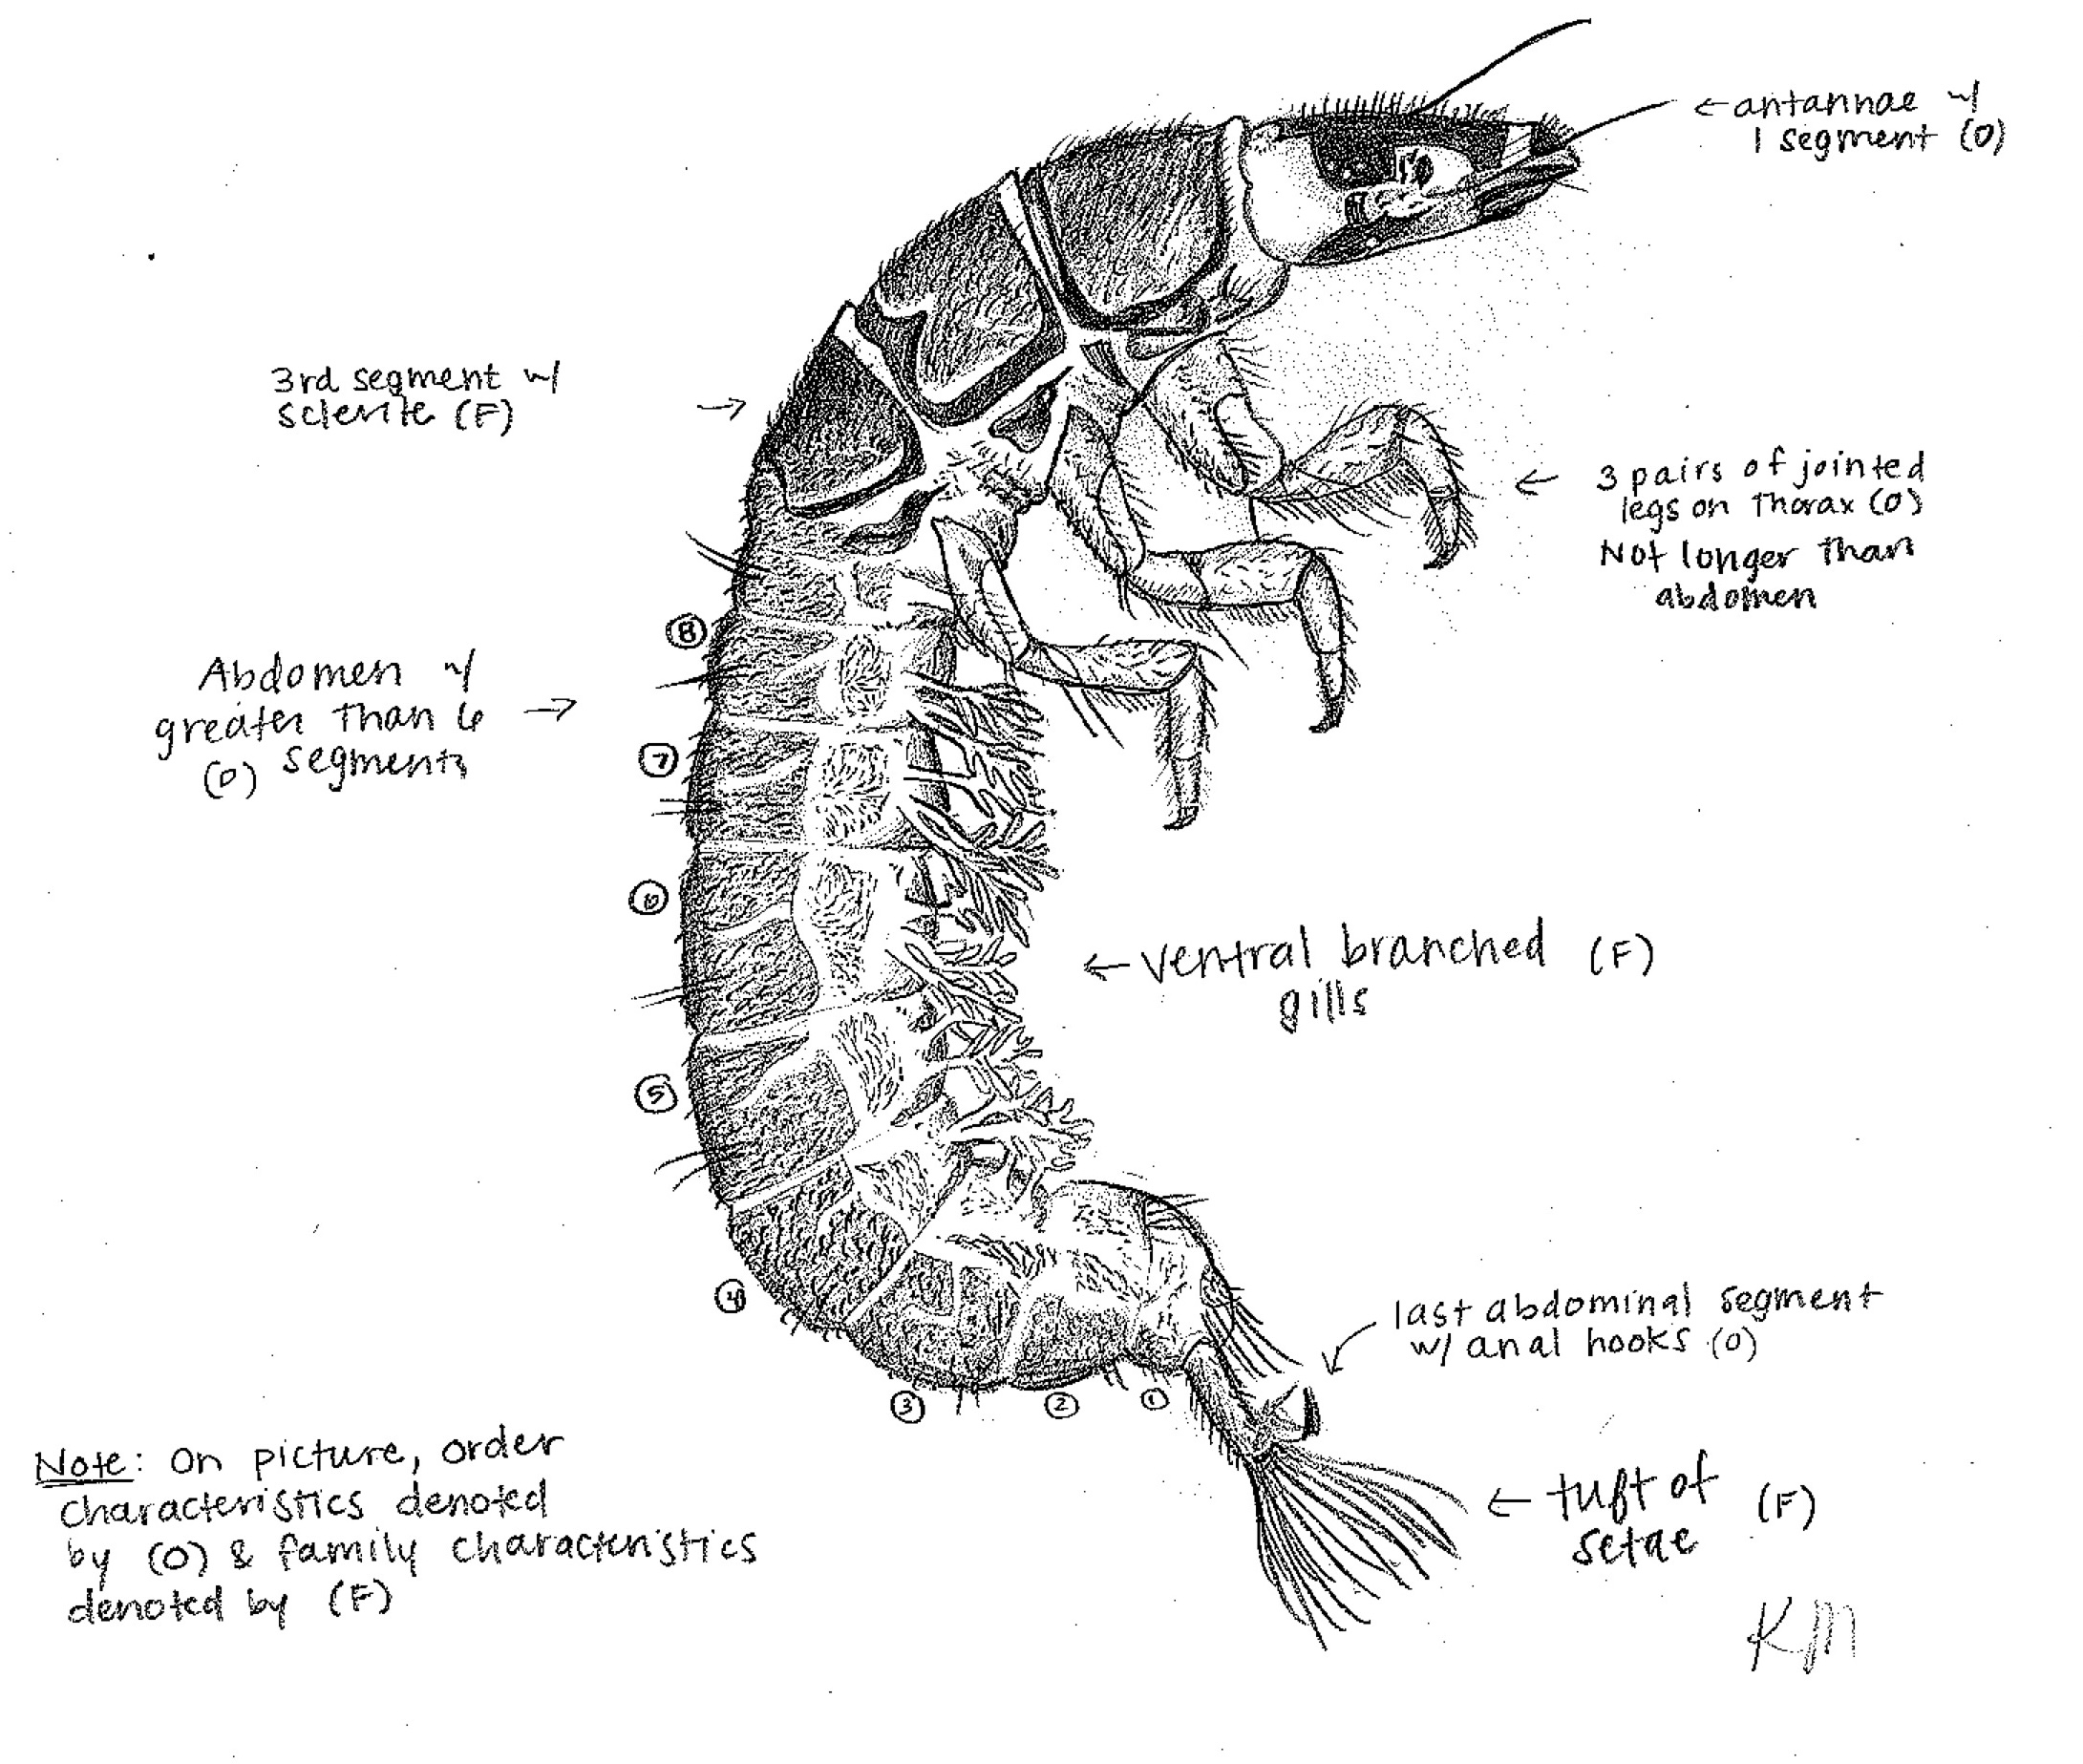 ←antannae w/
1 segment (O)
3rd segment w/
sclerite (F) →
← 3 pairs of jointed
legs on Thorax (O)
Not longer than
abdomen
Abdomen w/
greater than 6 →
(O) segments
8
7
6
← ventral branched (F)
gills
5
4
last abdominal segment
w/ anal hooks (O)
3
2
1
← tuft of (F)
setae
Note: On picture, order
characteristics denoted
by (O) & family characteristics
denoted by (F)
KM